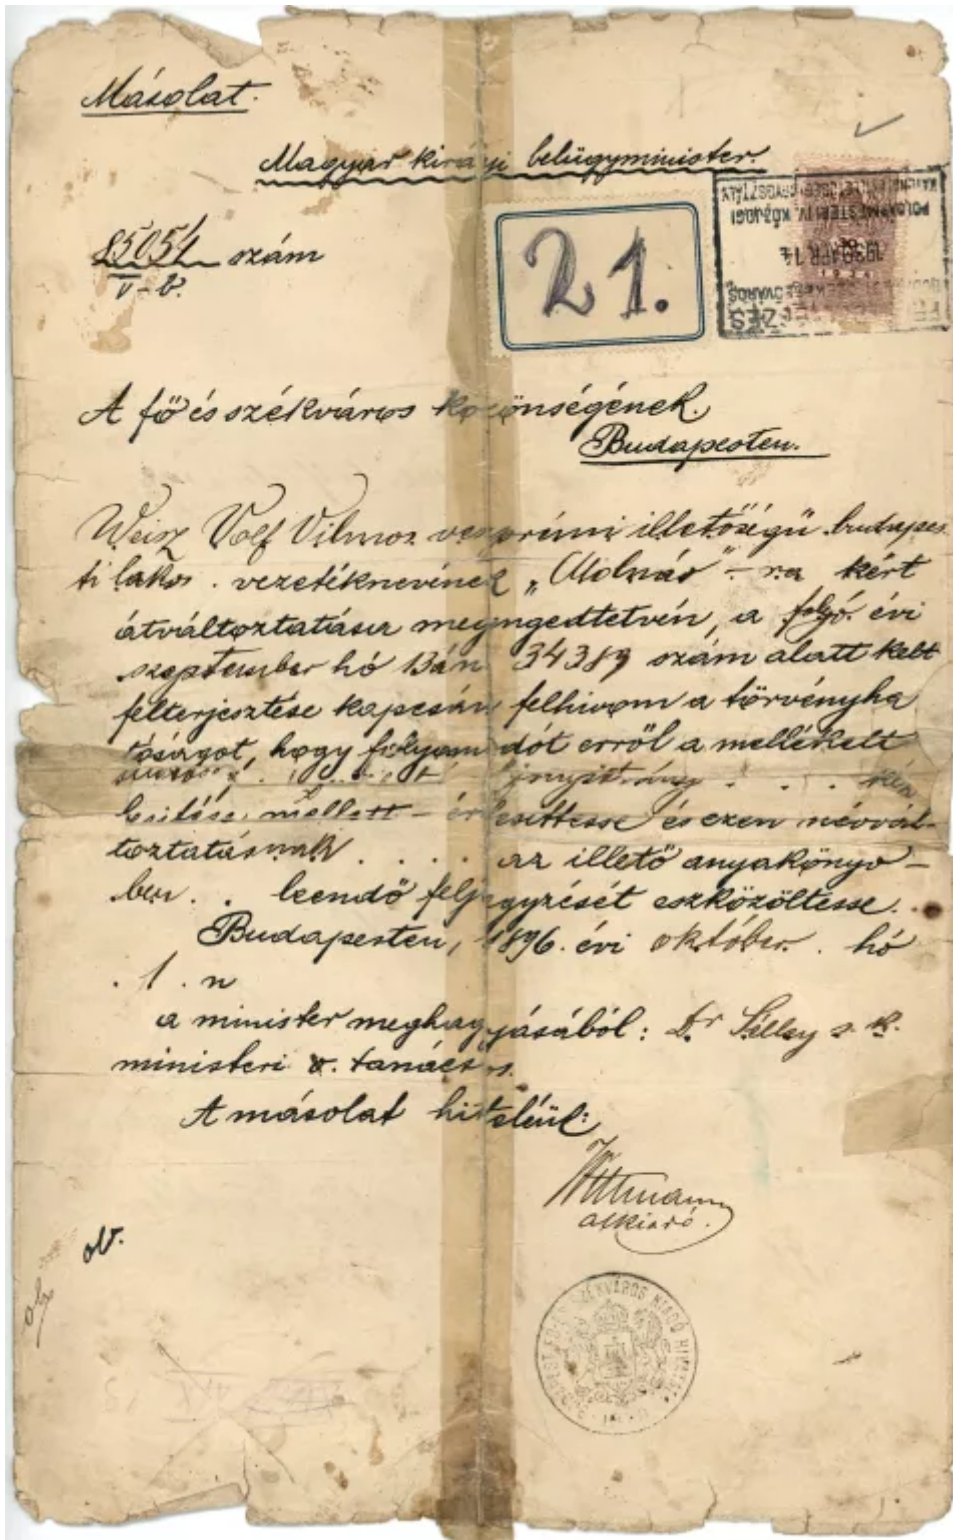 Másolat.
Magyar királyi belügyminister.
85051 szám
V-b.
21.
POLGÁRMESTERI IV. KÖZJOGI
1939 APR 14
A fő és székváros közönségének.
Budapesten.
Weisz Volf Vilmos veszprémi illetőségű budapes
ti lakos . vezetéknevének „Molnár"-ra kért
átváltoztatása megengedtetvén, a folyó évi
szeptember hó 13án 34389 szám alatt kelt
felterjesztése kapcsán felhivom a törvényha
tóságot, hogy folyamodót erről a mellékelt
besitése mellett - értesittesse és ezen névvál-
toztatásnak . . . . az illető anyakönyv-
ben . . leendő feljegyzését eszközöltesse.
Budapesten, 1896. évi október . hó
. 1 . n
a minister meghagyásából: Dr s. k.
ministeri o. tanácsos.
A másolat hiteléül:
Wittmann
alkiadó.